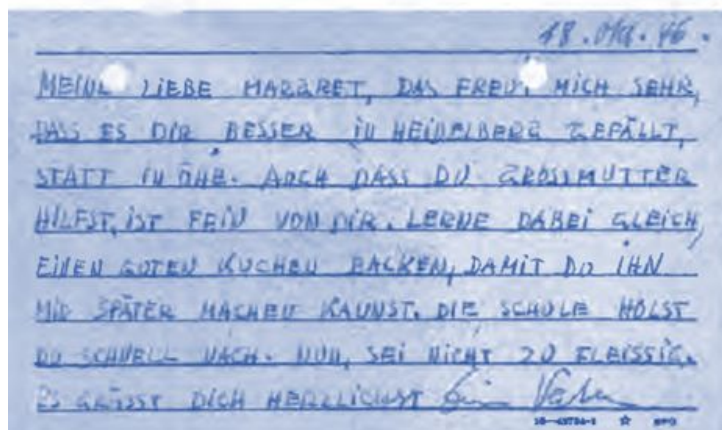 18. Okt. 46.
MEINE LIEBE MARGRET, DAS FREUT MICH SEHR,
DASS ES DIR BESSER IN HEIDELBERG GEFÄLLT,
STATT IN ÖHE. AUCH DASS DU GROSSMUTTER
HILFST, IST FEIN VON DIR. LERNE DABEI GLEICH,
EINEN GUTEN KUCHEN BACKEN, DAMIT DU IHN
MIR SPÄTER MACHEN KANNST. DIE SCHULE HOLST
DU SCHNELL NACH. NUN, SEI NICHT ZU FLEISSIG.
ES GRÜSST DICH HERZLICHST Dein Vater